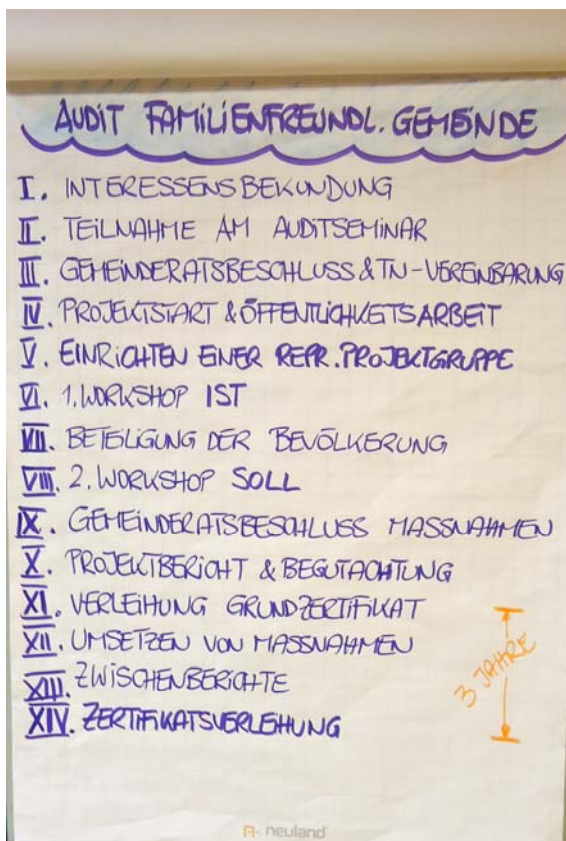 AUDIT FAMILIENFREUNDL. GEMEINDE
I. INTERESSENSBEKUNDUNG
II. TEILNAHME AM AUDITSEMINAR
III. GEMEINDERATSBESCHLUSS & TN-VEREINBARUNG
IV. PROJEKTSTART & ÖFFENTLICHKEITSARBEIT
V. EINRICHTEN EINER REPR. PROJEKTGRUPPE
VI. 1. WORKSHOP IST
VII. BETEILIGUNG DER BEVÖLKERUNG
VIII. 2. WORKSHOP SOLL
IX. GEMEINDERATSBESCHLUSS MASSNAHMEN
X. PROJEKTBERICHT & BEGUTACHTUNG
XI. VERLEIHUNG GRUNDZERTIFIKAT
XII. UMSETZEN VON MASSNAHMEN
XIII. ZWISCHENBERICHTE
XIV. ZERTIFIKATSVERLEIHUNG
3 JAHRE
neuland